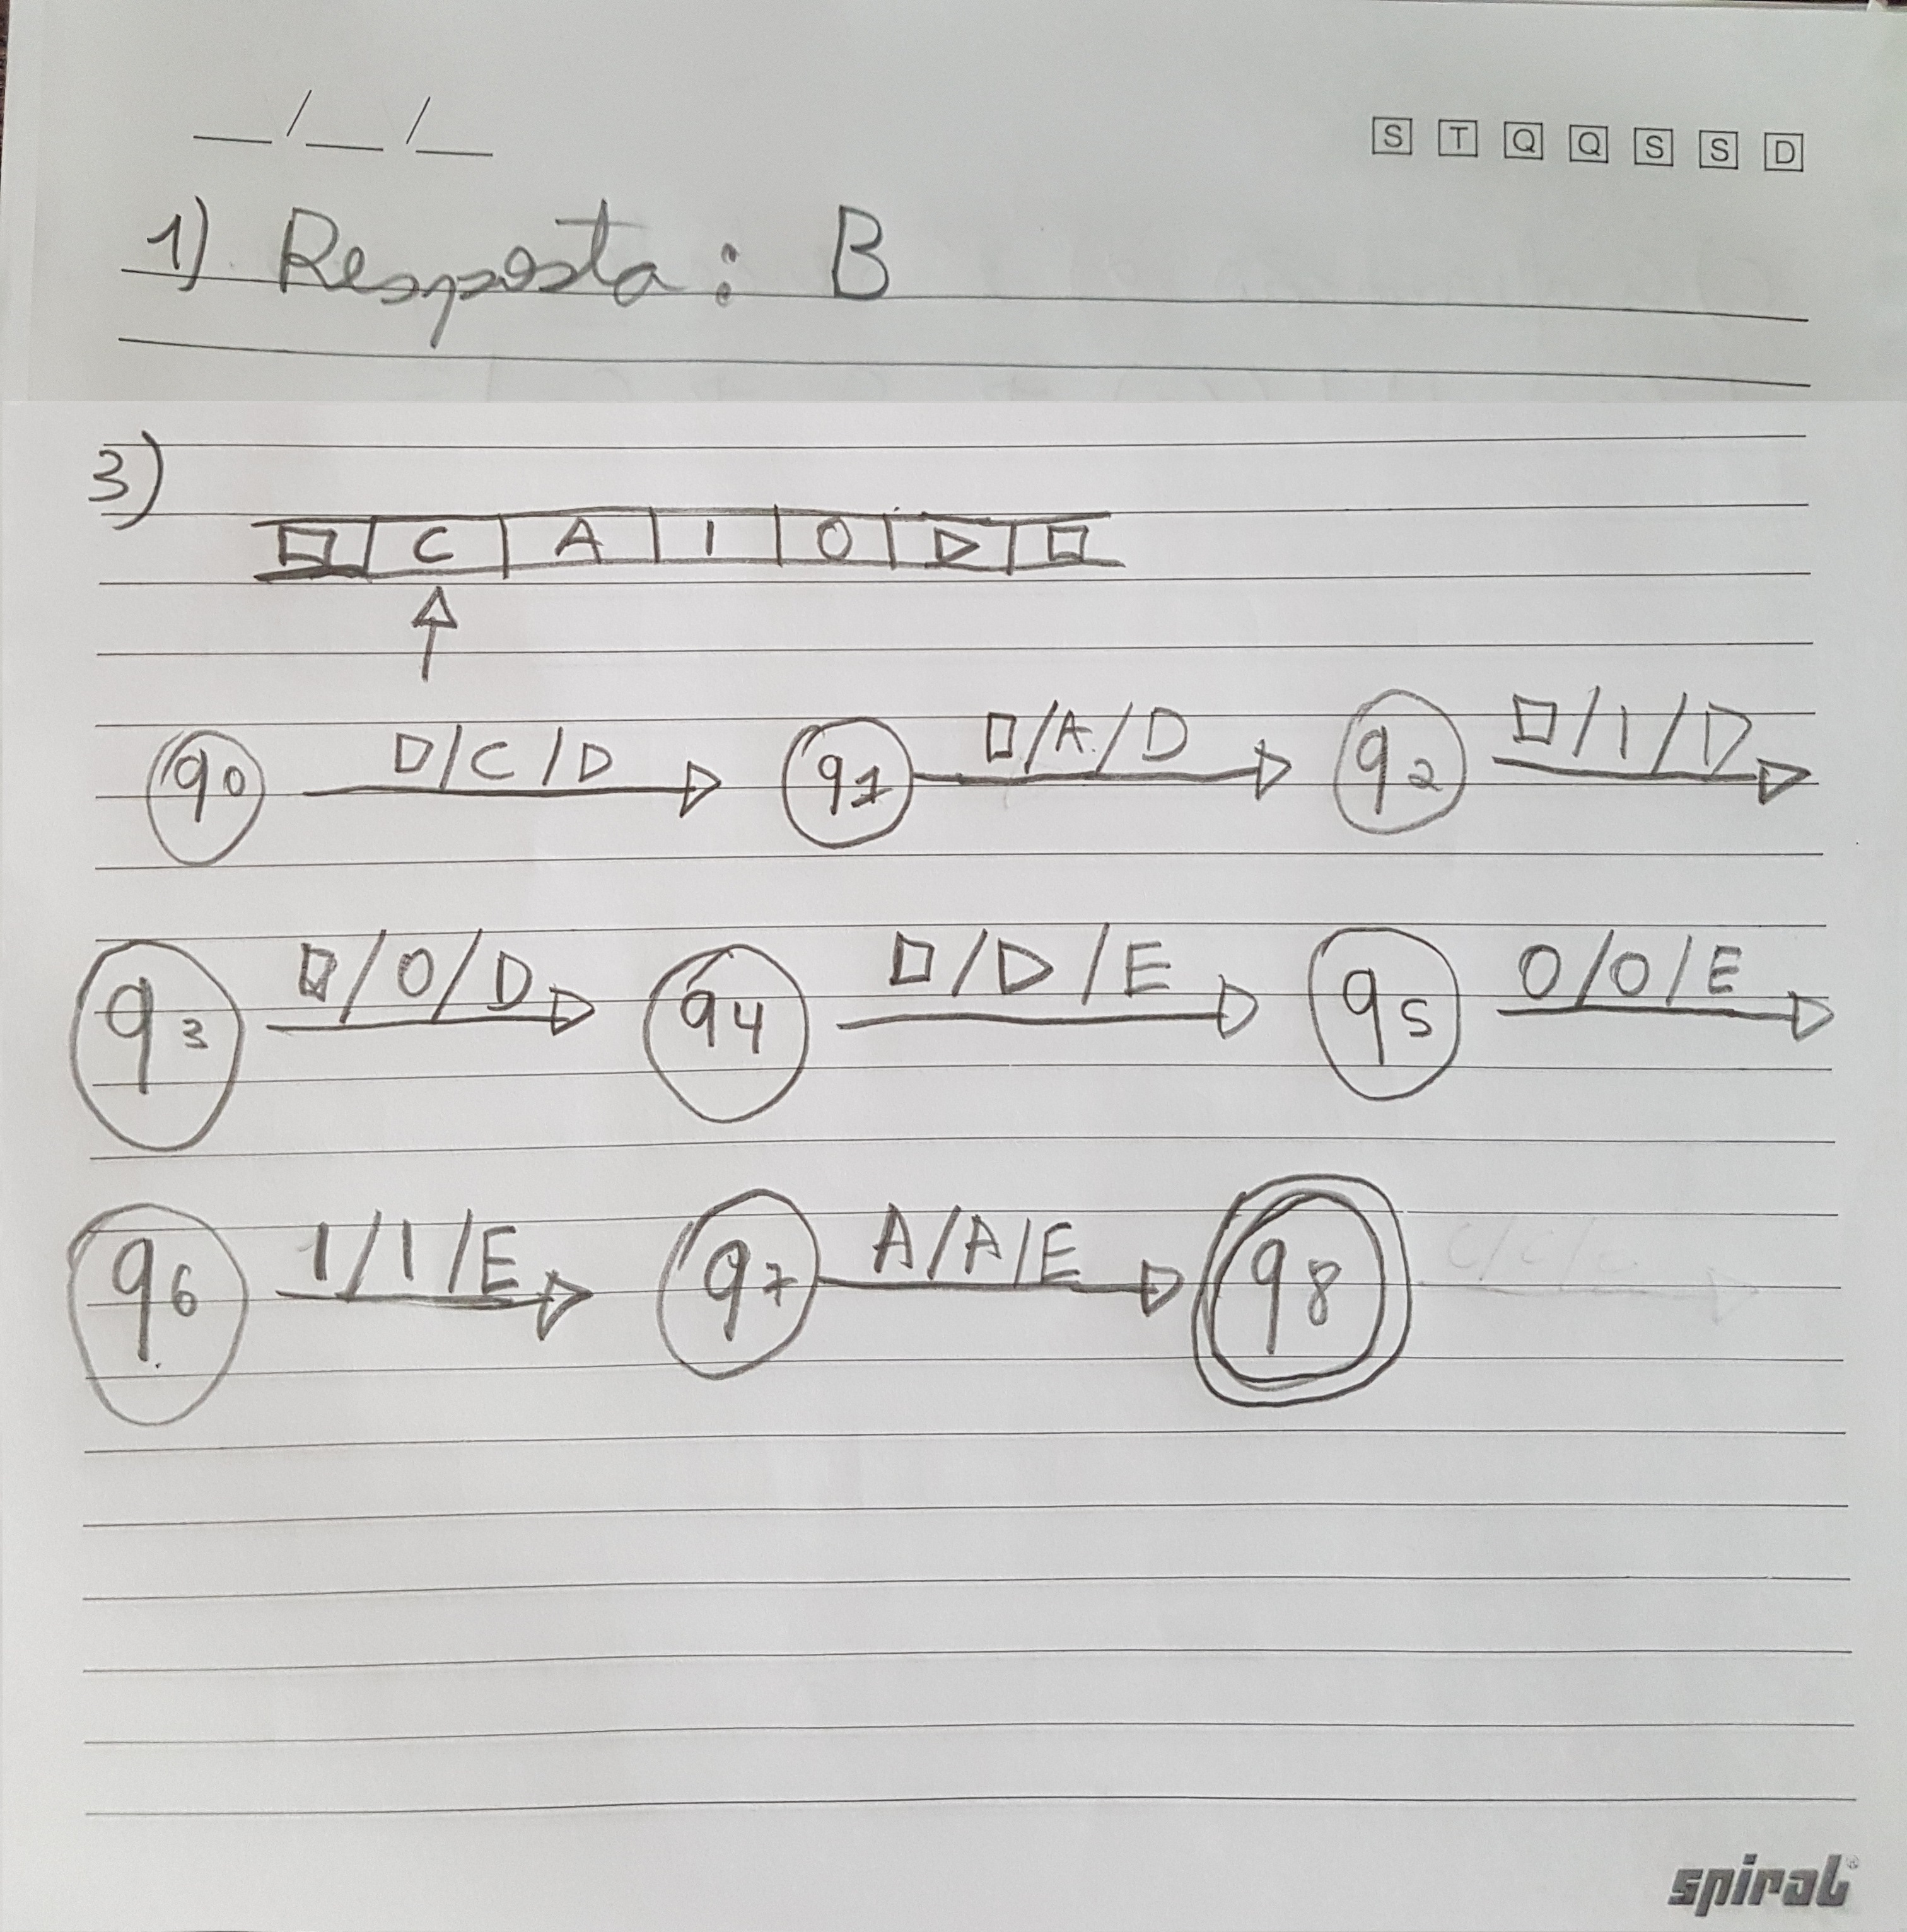 __/__/__ S T Q Q S S D
1) Resposta: B
3)
□ | C | A | I | O | ▷ | □
q0 □/C/D q1 □/A/D q2 □/I/D
q3 □/O/D q4 □/D/E q5 O/O/E
q6 I/I/E q7 A/A/E q8
spiral